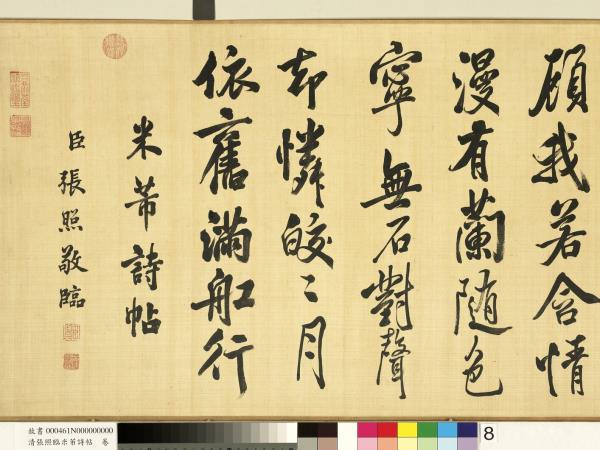 顧我若含情
漫有蘭随色
寧無石對聲
却憐皎〻月
依舊滿舡行
米芾詩帖
臣張照敬臨
故書 000461N000000000
清張照臨米芾詩帖 卷
8